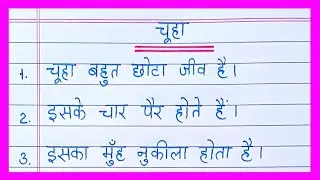 चूहा
1. चूहा बहुत छोटा जीव है।
2. इसके चार पैर होते हैं।
3. इसका मुँह नुकीला होता है।